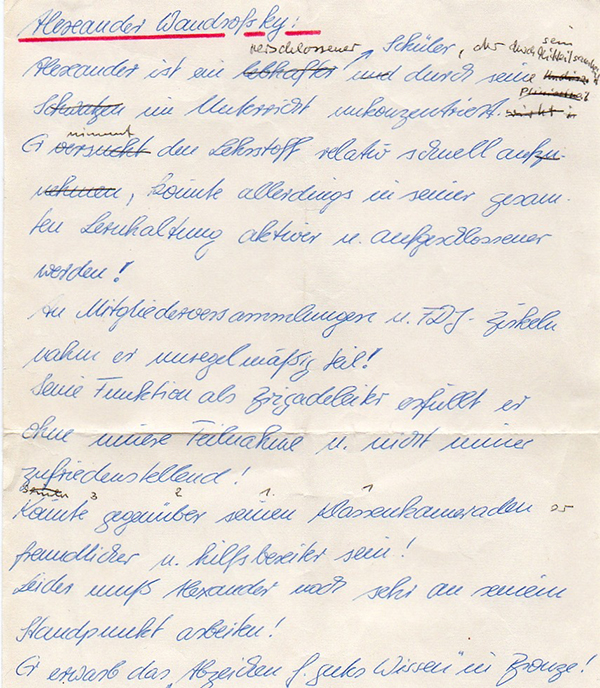 Alexander Wandrofsky:
verschlossener
Alexander ist ein lebhafter und Schüler, der durch sein Mitteilsamkeit durch seine
Schwatzen im Unterricht unkonzentriert.
nimmt
Er versucht den Lehrstoff relativ schnell aufzu-
nehmen, könnte allerdings in seiner gesam-
ten Lernhaltung aktiver u. aufgeschlossener
werden!
An Mitgliederversammlungen u. FDJ-Zirkeln
nahm er unregelmäßig teil!
Seine Funktion als Brigadeleiter erfüllt er
ohne innere Teilnahme u. nicht immer
zufriedenstellend!
3 2 1. 1
Könnte gegenüber seinen Klassenkameraden er
freundlicher u. hilfsbereiter sein!
Leider muß Alexander noch sehr an seinem
Standpunkt arbeiten!
Er erwarb das Abzeichen f. gutes Wissen" in Bronze!